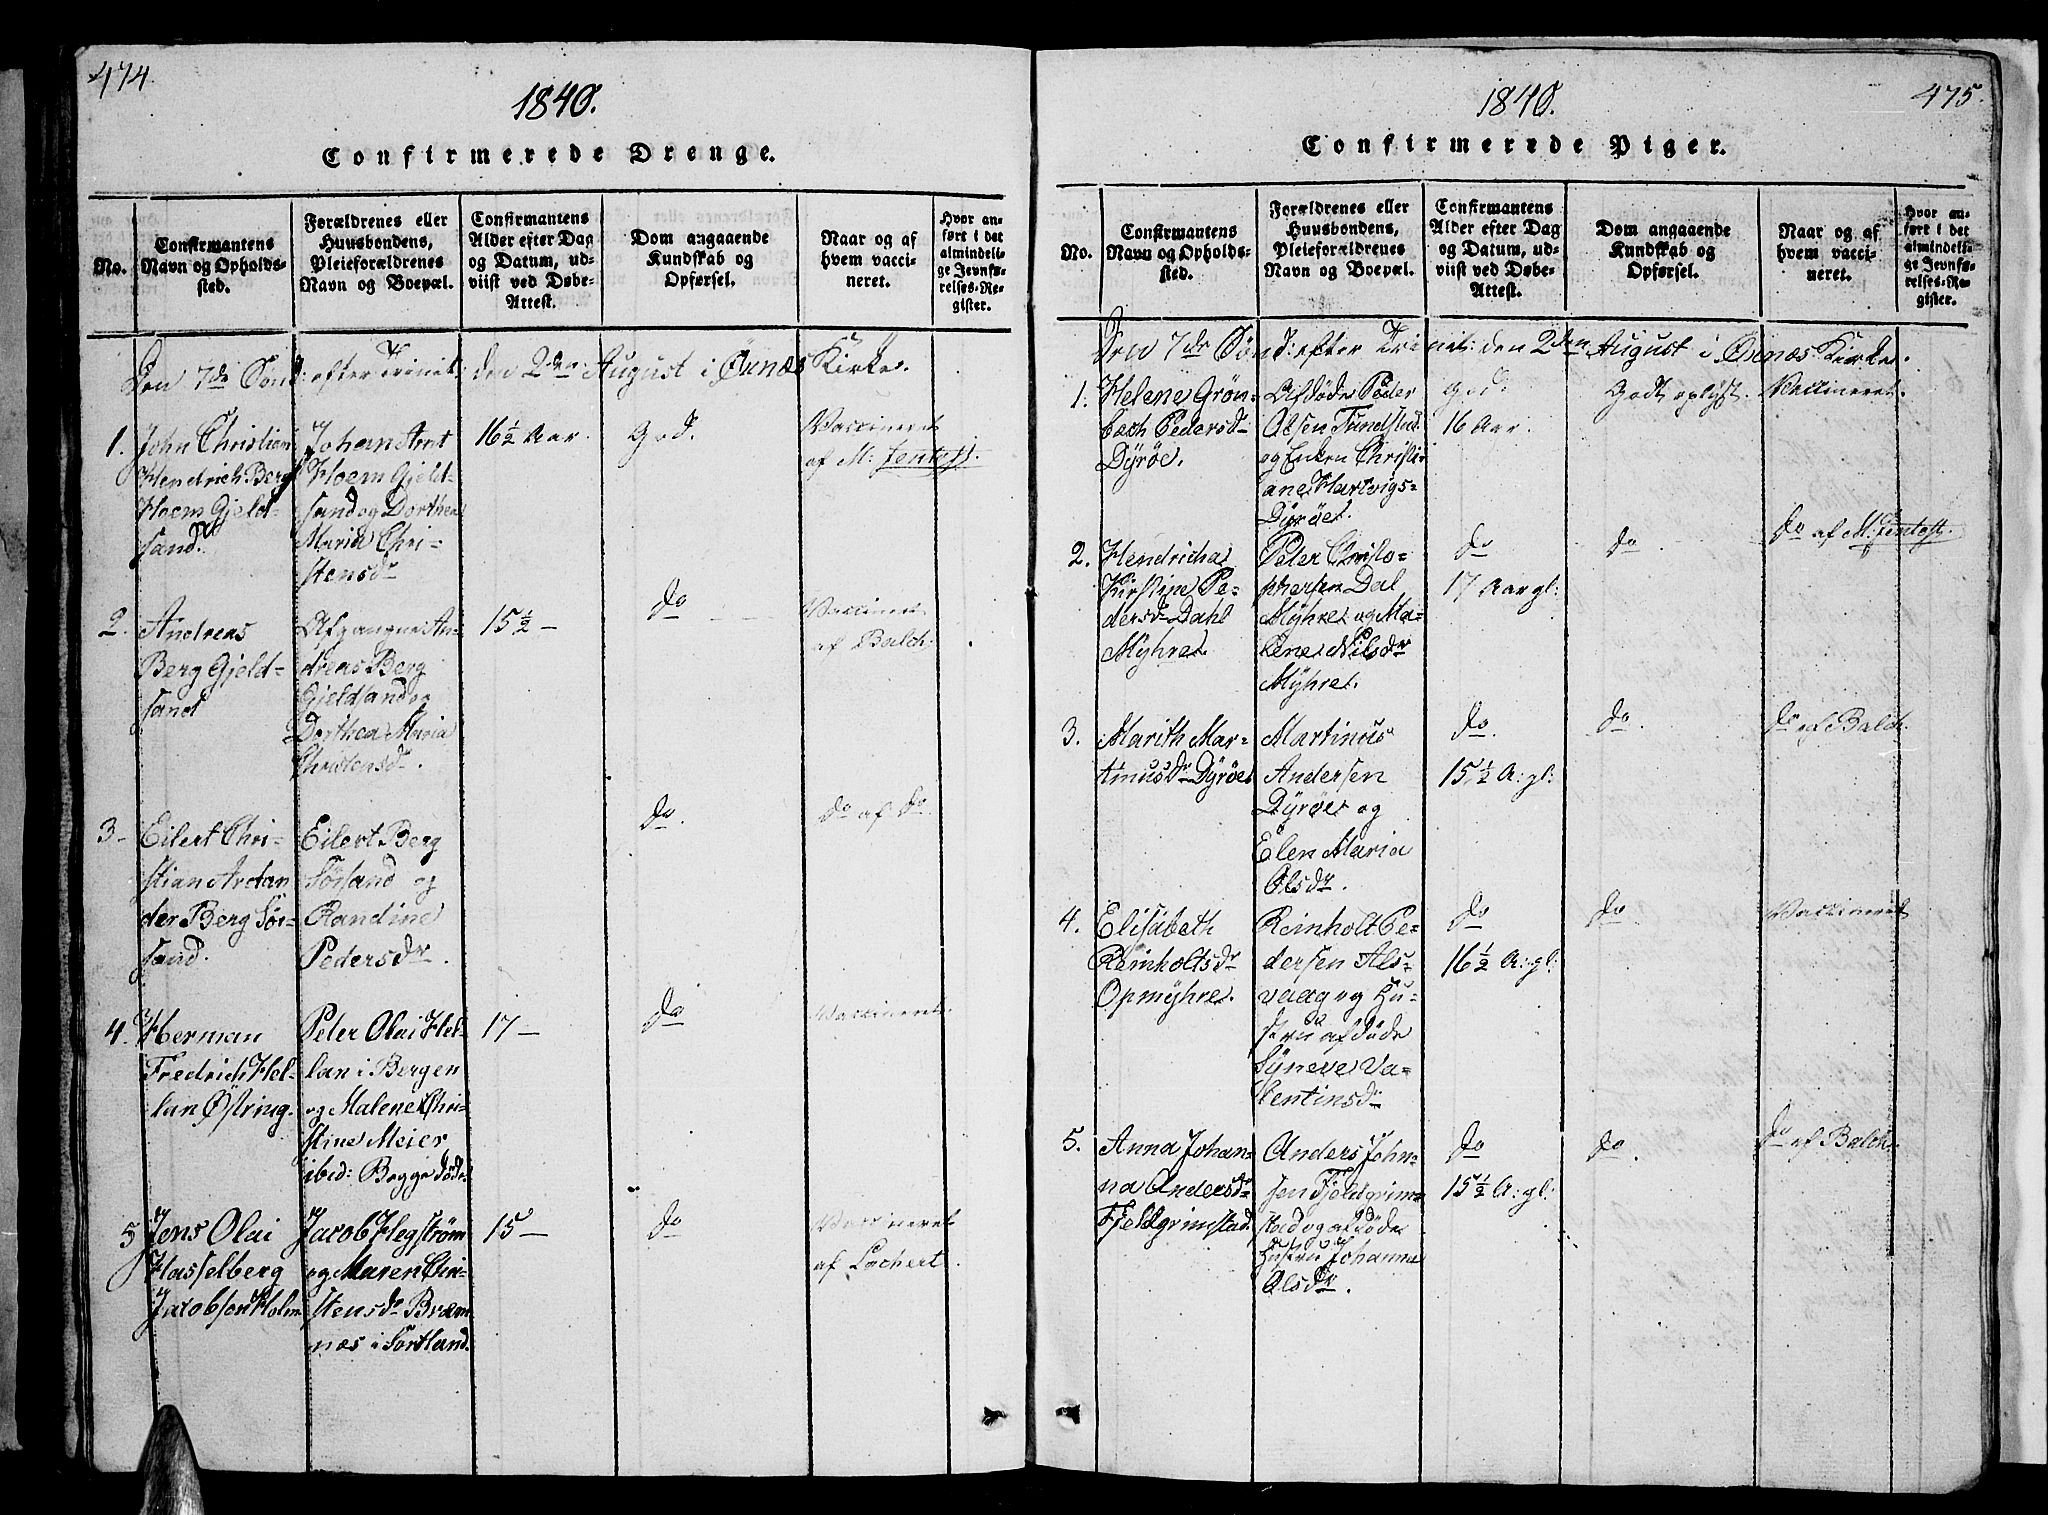 474.
1840.
Confirmerede Drenge.
No.
Confirmantens
Navn og Opholds-
sted.
Forældrenes eller
Huusbondens,
Pleieforældrenes
Navn og Boepæl.
Confirmantens
Alder efter Dag
og Datum, ud-
viist ved Døbe-
Attest.
Dom angaaende
Kundskab og
Opførsel.
Naar og af
hvem vacci-
neret.
Hvor an-
ført i det
almindeli-
ge Jevnfø-
relses-Re-
gister.
Den 7de Sönd: efter Trinit: den 2den August i Öxnæs Kirke.
1.
John Christian
Hendrich Berg
Hoem Gjeld-
sand.
Johan Arnt
Hoem Gjeld-
sand og Dorthea
Maria Chri-
stensdr
16 1/2 Aar.
God.
Vaccineret
af M: Jentoft.
2.
Andreas
Berg Gjeld-
sand
Afgangne An-
dreas Berg
Gjeldsand og
Dorthea Maria
Christensdr.
15 1/2 —
do
Vaccineret
af Balch.
3.
Eilert Chri-
stian
der Berg Sör-
sand.
Eilert Berg
Sörsand og
Randine
Pedersdr.
do.
do af do
4.
Herman
Fredrich Hel-
lan Östring.
Peter Olai Hel-
lan i Bergen
og Malene Chri-
stine Meier
ibid: Begge döde.
17 —
do
Vaccineret.
5
Jens Olai
Hasselberg
Jacobsen Holm
Jacob Hegström
og Maren Chri-
stensdr Bræm-
næs i Sortland.
15 —
do
Vaccineret
af Lochert.
475.
1840.
Confirmerede Piger.
No.
Confirmantens
Navn og Opholds-
sted.
Forældrenes eller
Huusbondens,
Pleieforældrenes
Navn og Boepæl.
Confirmantens
Alder efter Dag
og Datum, ud-
viist ved Døbe-
Attest.
Dom angaaende
Kundskab og
Opførsel.
Naar og af
hvem vacci-
neret.
Hvor an-
ført i det
almindeli-
ge Jevnfø-
relses-Re-
gister.
Den 7de Sönd: efter Trinit: den 2den August i Öxnæs Kirke.
1.
Helene Grön-
bech Pedersdr
Dÿröe.
Afdöde Peder
Olsen Tundstad
og Enken Christi-
ane Hartvigs-
Dÿröe.
God:
16 Aar.
Godt oplÿst.
Vaccineret.
2.
Hendricha
Kirstine Pe-
dersdr Dahl
Mÿhre.
Peter Christo-
phersen Dal
Mÿhre og Ma-
lene Nilsdr
Mÿhre.
do
17 Aar gl:
do
do af M: Jentoft.
3.
Marith Mar-
tinusdr Dÿröe
Martinus
Andersen
Dÿröe og
Elen Maria
Olsdr.
do.
15 1/2 A: gl:
do.
do af Balch.
4.
Elisabeth
Reinholtsdr
Opmÿhre.
Reinholt Pe-
dersen Als-
vaag og Hu-
stru afdöde
Sÿneve Va-
lentinsdr
do
16 1/2 A: gl:
do
Vaccineret
5.
Anna Johan-
na Andersdr
Fjeldgrimstad.
Anders John-
sen Fjeldgrim-
stad og afdöde
Hustru Johanna
Olsdr.
do
15 1/2 A: gl:
do.
do af Balch.